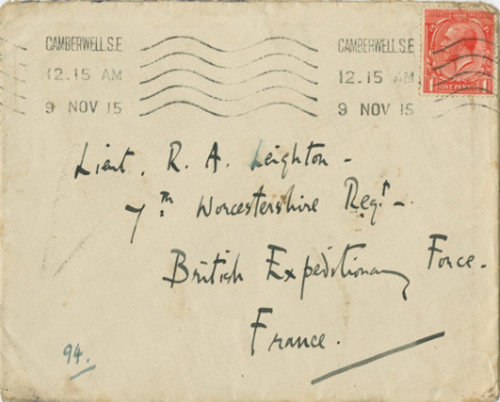 CAMBERWELL.S.E CAMBERWELL.S.E
12.15 AM 12.15 AM
9 NOV 15 9 NOV 15
ONE PENNY
Lieut. R. A. Leighton -
7th Worcestershire Regt -
British Expeditionary Force.
France.
94.